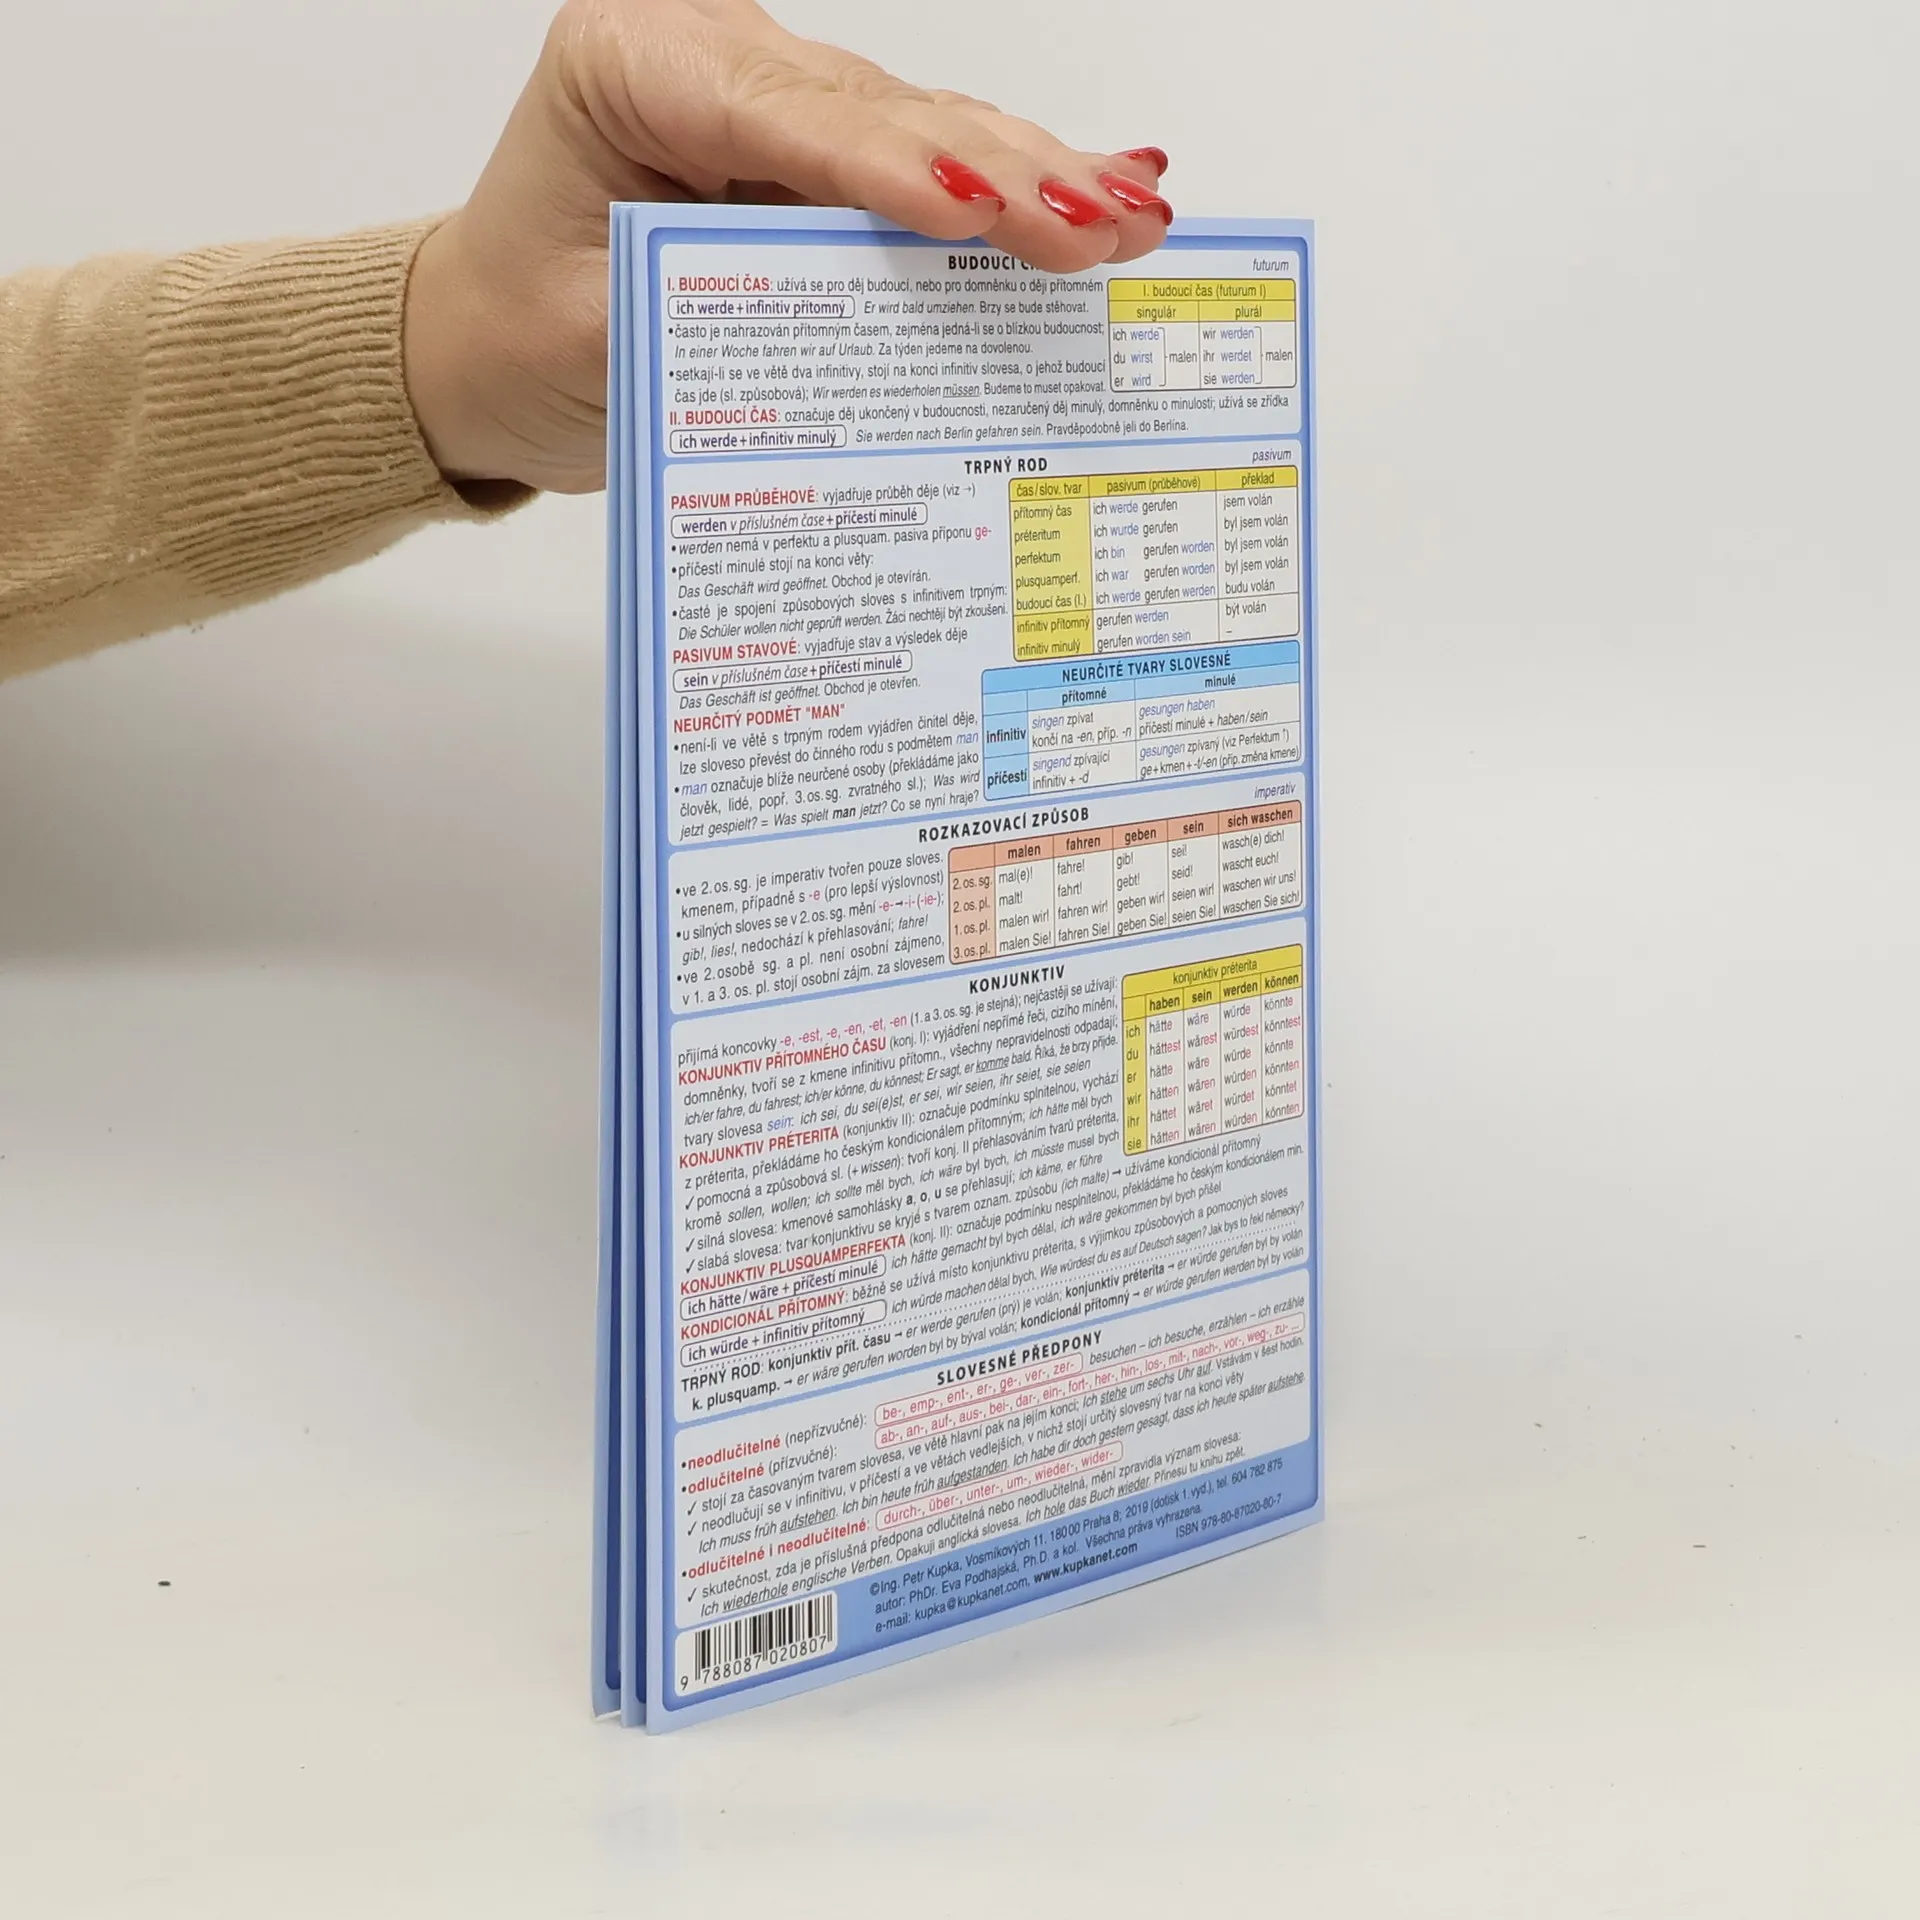 BUDOUCÍ
futurum
I. BUDOUCÍ ČAS: užívá se pro děj budoucí, nebo pro domněnku o ději přítomném
ich werde + infinitiv přítomný Er wird bald umziehen. Brzy se bude stěhovat.
•často je nahrazován přítomným časem, zejména jedná-li se o blízkou budoucnost;
In einer Woche fahren wir auf Urlaub. Za týden jedeme na dovolenou.
•setkají-li se ve větě dva infinitivy, stojí na konci infinitiv slovesa, o jehož budoucí
čas jde (sl. způsobová); Wir werden es wiederholen müssen. Budeme to muset opakovat.
I. budoucí čas (futurum I)
singulár plurál
ich werde wir werden
du wirst malen ihr werdet malen
er wird sie werden
II. BUDOUCÍ ČAS: označuje děj ukončený v budoucnosti, nezaručený děj minulý, domněnku o minulosti; užívá se zřídka
ich werde + infinitiv minulý Sie werden nach Berlin gefahren sein. Pravděpodobně jeli do Berlína.
TRPNÝ ROD
pasivum
PASIVUM PRŮBĚHOVÉ: vyjadřuje průběh děje (viz →)
werden v příslušném čase + příčestí minulé
•werden nemá v perfektu a plusquam. pasiva příponu ge-
•příčestí minulé stojí na konci věty:
Das Geschäft wird geöffnet. Obchod je otevírán.
•časté je spojení způsobových sloves s infinitivem trpným:
Die Schüler wollen nicht geprüft werden. Žáci nechtějí být zkoušeni.
PASIVUM STAVOVÉ: vyjadřuje stav a výsledek děje
sein v příslušném čase + příčestí minulé
Das Geschäft ist geöffnet. Obchod je otevřen.
čas/slov. tvar pasivum (průběhové) překlad
přítomný čas ich werde gerufen jsem volán
préteritum ich wurde gerufen byl jsem volán
perfektum ich bin gerufen worden byl jsem volán
plusquamperf. ich war gerufen worden byl jsem volán
budoucí čas (I.) ich werde gerufen werden budu volán
infinitiv přítomný gerufen werden být volán
infinitiv minulý gerufen worden sein –
NEURČITÝ PODMĚT "MAN"
•není-li ve větě s trpným rodem vyjádřen činitel děje,
lze sloveso převést do činného rodu s podmětem man
•man označuje blíže neurčené osoby (překládáme jako
člověk, lidé, popř. 3.os.sg. zvratného sl.); Was wird
jetzt gespielt? = Was spielt man jetzt? Co se nyní hraje?
NEURČITÉ TVARY SLOVESNÉ
přítomné minulé
infinitiv singen zpívat gesungen haben
končí na -en, příp. -n příčestí minulé + haben/sein
příčestí singend zpívající gesungen zpívaný (viz Perfektum ↑)
infinitiv + -d ge+kmen+-t/-en (příp. změna kmene)
ROZKAZOVACÍ ZPŮSOB
imperativ
•ve 2.os.sg. je imperativ tvořen pouze sloves.
kmenem, případně s -e (pro lepší výslovnost)
•u silných sloves se v 2.os.sg. mění -e-→-i-(-ie-);
gib!, lies!, nedochází k přehlasování; fahre!
•ve 2.osobě sg. a pl. není osobní zájmeno,
v 1. a 3. os. pl. stojí osobní zájm. za slovesem
malen fahren geben sein sich waschen
2.os.sg. mal(e)! fahre! gib! sei! wasch(e) dich!
2.os.pl. malt! fahrt! gebt! seid! wascht euch!
1.os.pl. malen wir! fahren wir! geben wir! seien wir! waschen wir uns!
3.os.pl. malen Sie! fahren Sie! geben Sie! seien Sie! waschen Sie sich!
KONJUNKTIV
přijímá koncovky -e, -est, -e, -en, -et, -en (1.a 3.os.sg. je stejná); nejčastěji se užívají:
KONJUNKTIV PŘÍTOMNÉHO ČASU (konj. I): vyjádření nepřímé řeči, cizího mínění,
domněnky, tvoří se z kmene infinitivu přítomn., všechny nepravidelnosti odpadají;
ich/er fahre, du fahrest; ich/er könne, du könnest; Er sagt, er komme bald. Říká, že brzy přijde.
tvary slovesa sein: ich sei, du sei(e)st, er sei, wir seien, ihr seiet, sie seien
KONJUNKTIV PRÉTERITA (konjunktiv II): označuje podmínku splnitelnou, vychází
z préterita, překládáme ho českým kondicionálem přítomným; ich hätte měl bych
✓pomocná a způsobová sl. (+ wissen): tvoří konj. II přehlasováním tvarů préterita,
kromě sollen, wollen; ich sollte měl bych, ich wäre byl bych, ich müsste musel bych
✓silná slovesa: kmenové samohlásky a, o, u se přehlasují; ich käme, er führe
✓slabá slovesa: tvar konjunktivu se kryje s tvarem oznam. způsobu (ich malte) → užíváme kondicionál přítomný
konjunktiv préterita
haben sein werden können
ich hätte wäre würde könnte
du hättest wärest würdest könntest
er hätte wäre würde könnte
wir hätten wären würden könnten
ihr hättet wäret würdet könntet
sie hätten wären würden könnten
KONJUNKTIV PLUSQUAMPERFEKTA (konj. II): označuje podmínku nesplnitelnou, překládáme ho českým kondicionálem min.
ich hätte / wäre + příčestí minulé ich hätte gemacht byl bych dělal, ich wäre gekommen byl bych přišel
KONDICIONÁL PŘÍTOMNÝ: běžně se užívá místo konjunktivu préterita, s výjimkou způsobových a pomocných sloves
ich würde + infinitiv přítomný ich würde machen dělal bych, Wie würdest du es auf Deutsch sagen? Jak bys to řekl německy?
TRPNÝ ROD: konjunktiv přít. času → er werde gerufen (prý) je volán; konjunktiv préterita → er würde gerufen byl by volán
k. plusquamp. → er wäre gerufen worden byl by býval volán; kondicionál přítomný → er würde gerufen werden byl by volán
SLOVESNÉ PŘEDPONY
•neodlučitelné (nepřízvučné): be-, emp-, ent-, er-, ge-, ver-, zer- besuchen – ich besuche, erzählen – ich erzähle
•odlučitelné (přízvučné): ab-, an-, auf-, aus-, bei-, dar-, ein-, fort-, her-, hin-, los-, mit-, nach-, vor-, weg-, zu- ...
✓ stojí za časovaným tvarem slovesa, ve větě hlavní pak na jejím konci; Ich stehe um sechs Uhr auf. Vstávám v šest hodin.
✓ neodlučují se v infinitivu, v příčestí a ve větách vedlejších, v nichž stojí určitý slovesný tvar na konci věty
Ich muss früh aufstehen. Ich bin heute früh aufgestanden. Ich habe dir doch gestern gesagt, dass ich heute später aufstehe.
•odlučitelné i neodlučitelné: durch-, über-, unter-, um-, wieder-, wider-
✓ skutečnost, zda je příslušná předpona odlučitelná nebo neodlučitelná, mění zpravidla význam slovesa:
Ich wiederhole englische Verben. Opakuji anglická slovesa. Ich hole das Buch wieder. Přinesu tu knihu zpět.
©Ing. Petr Kupka, Vosmíkových 11, 18000 Praha 8; 2019 (dotisk 1.vyd.), tel. 604 782 875
autor: PhDr. Eva Podhajská, Ph.D. a kol. Všechna práva vyhrazena.
e-mail: kupka@kupkanet.com, www.kupkanet.com
ISBN 978-80-87020-80-7
9 788087 020807